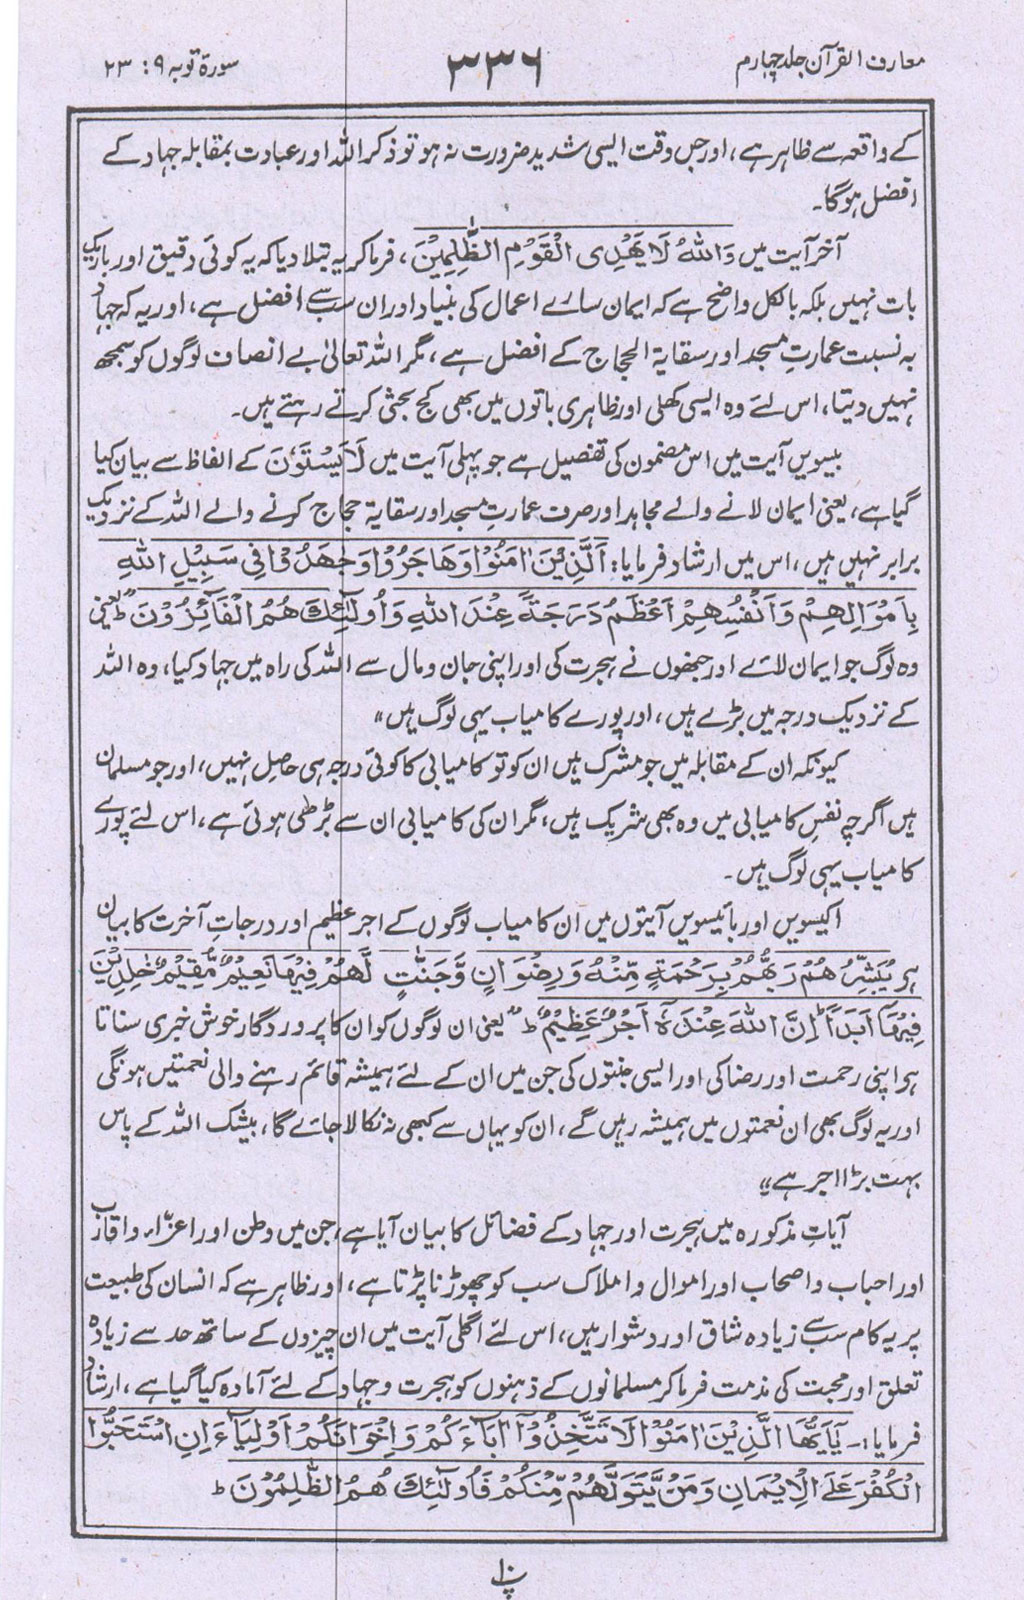 معارف القرآن جلد چہارم ۳۳۶ سورۃ توبہ ۹ : ۲۳
کے واقعہ سے ظاہر ہے، اور جس وقت ایسی شدید ضرورت نہ ہو تو ذکر اللہ اور عبادت بمقابلہ جہاد کے
افضل ہوگا۔
آخر آیت میں وَاللّٰهُ لَا يَهْدِى الْقَوْمَ الظّٰلِمِيْنَ، فرما کر یہ بتلا دیا کہ یہ کوئی دقیق اور باریک
بات نہیں بلکہ بالکل واضح ہے کہ ایمان سارے اعمال کی بنیاد اور ان سب سے افضل ہے، اور یہ کہ جہاد
بہ نسبت عمارتِ مسجد اور سقایۃ الحجاج کے افضل ہے، مگر اللہ تعالیٰ بے انصاف لوگوں کو سمجھ
نہیں دیتا، اس لئے وہ ایسی کھلی اور ظاہری باتوں میں بھی کج بحثی کرتے رہتے ہیں۔
بیسویں آیت میں اس مضمون کی تفصیل ہے جو پہلی آیت میں لَا يَسْتَوٗنَ کے الفاظ سے بیان کیا
گیا ہے، یعنی ایمان لانے والے مجاہد اور صرف عمارتِ مسجد اور سقایۃ حجاج کرنے والے اللہ کے نزدیک
برابر نہیں ہیں، اس میں ارشاد فرمایا: اَلَّذِيْنَ اٰمَنُوْا وَهَاجَرُوْا وَجٰهَدُوْا فِىْ سَبِيْلِ اللّٰهِ
بِاَمْوَالِهِمْ وَاَنْفُسِهِمْ اَعْظَمُ دَرَجَةً عِنْدَ اللّٰهِ وَاُولٰٓئِكَ هُمُ الْفَآئِزُوْنَ ط "یعنی
وہ لوگ جو ایمان لائے اور جنھوں نے ہجرت کی اور اپنی جان و مال سے اللہ کی راہ میں جہاد کیا، وہ اللہ
کے نزدیک درجہ میں بڑے ہیں، اور پورے کامیاب یہی لوگ ہیں"
کیونکہ ان کے مقابلہ میں جو مشرک ہیں ان کو تو کامیابی کا کوئی درجہ ہی حاصل نہیں، اور جو مسلمان
ہیں اگرچہ نفس کامیابی میں وہ بھی شریک ہیں، مگر ان کی کامیابی ان سے بڑھی ہوئی ہے، اس لئے پورے
کامیاب یہی لوگ ہیں۔
اکیسویں اور بائیسویں آیتوں میں ان کامیاب لوگوں کے اجر عظیم اور درجاتِ آخرت کا بیان
ہر يُبَشِّرُهُمْ رَبُّهُمْ بِرَحْمَةٍ مِّنْهُ وَرِضْوَانٍ وَّجَنّٰتٍ لَّهُمْ فِيْهَا نَعِيْمٌ مُّقِيْمٌ خٰلِدِيْنَ
فِيْهَآ اَبَدًا ط اِنَّ اللّٰهَ عِنْدَهٗٓ اَجْرٌ عَظِيْمٌ ط "یعنی ان لوگوں کو ان کا پروردگار خوش خبری سناتا
ہر اپنی رحمت اور رضا کی اور ایسی جنتوں کی جن میں ان کے لئے ہمیشہ قائم رہنے والی نعمتیں ہونگی
اور یہ لوگ بھی ان نعمتوں میں ہمیشہ رہیں گے، ان کو یہاں سے کبھی نہ نکالا جائے گا، بیشک اللہ کے پاس
بہت بڑا اجر ہے"
آیاتِ مذکورہ میں ہجرت اور جہاد کے فضائل کا بیان آیا ہے، جن میں وطن اور اعزاء و اقارب
اور احباب و اصحاب اور اموال و املاک سب کو چھوڑنا پڑتا ہے، اور ظاہر ہے کہ انسان کی طبیعت
پر یہ کام سب سے زیادہ شاق اور دشوار ہیں، اس لئے اگلی آیت میں ان چیزوں کے ساتھ حد سے زیادہ
تعلق اور محبت کی مذمت فرما کر مسلمانوں کے ذہنوں کو ہجرت و جہاد کے لئے آمادہ کیا گیا ہے، ارشاد
فرمایا:۔ يٰٓاَيُّهَا الَّذِيْنَ اٰمَنُوْا لَا تَتَّخِذُوْٓا اٰبَآءَكُمْ وَاِخْوَانَكُمْ اَوْلِيَآءَ اِنِ اسْتَحَبُّوا
الْكُفْرَ عَلَى الْاِيْمَانِ وَمَنْ يَّتَوَلَّهُمْ مِّنْكُمْ فَاُولٰٓئِكَ هُمُ الظّٰلِمُوْنَ ط